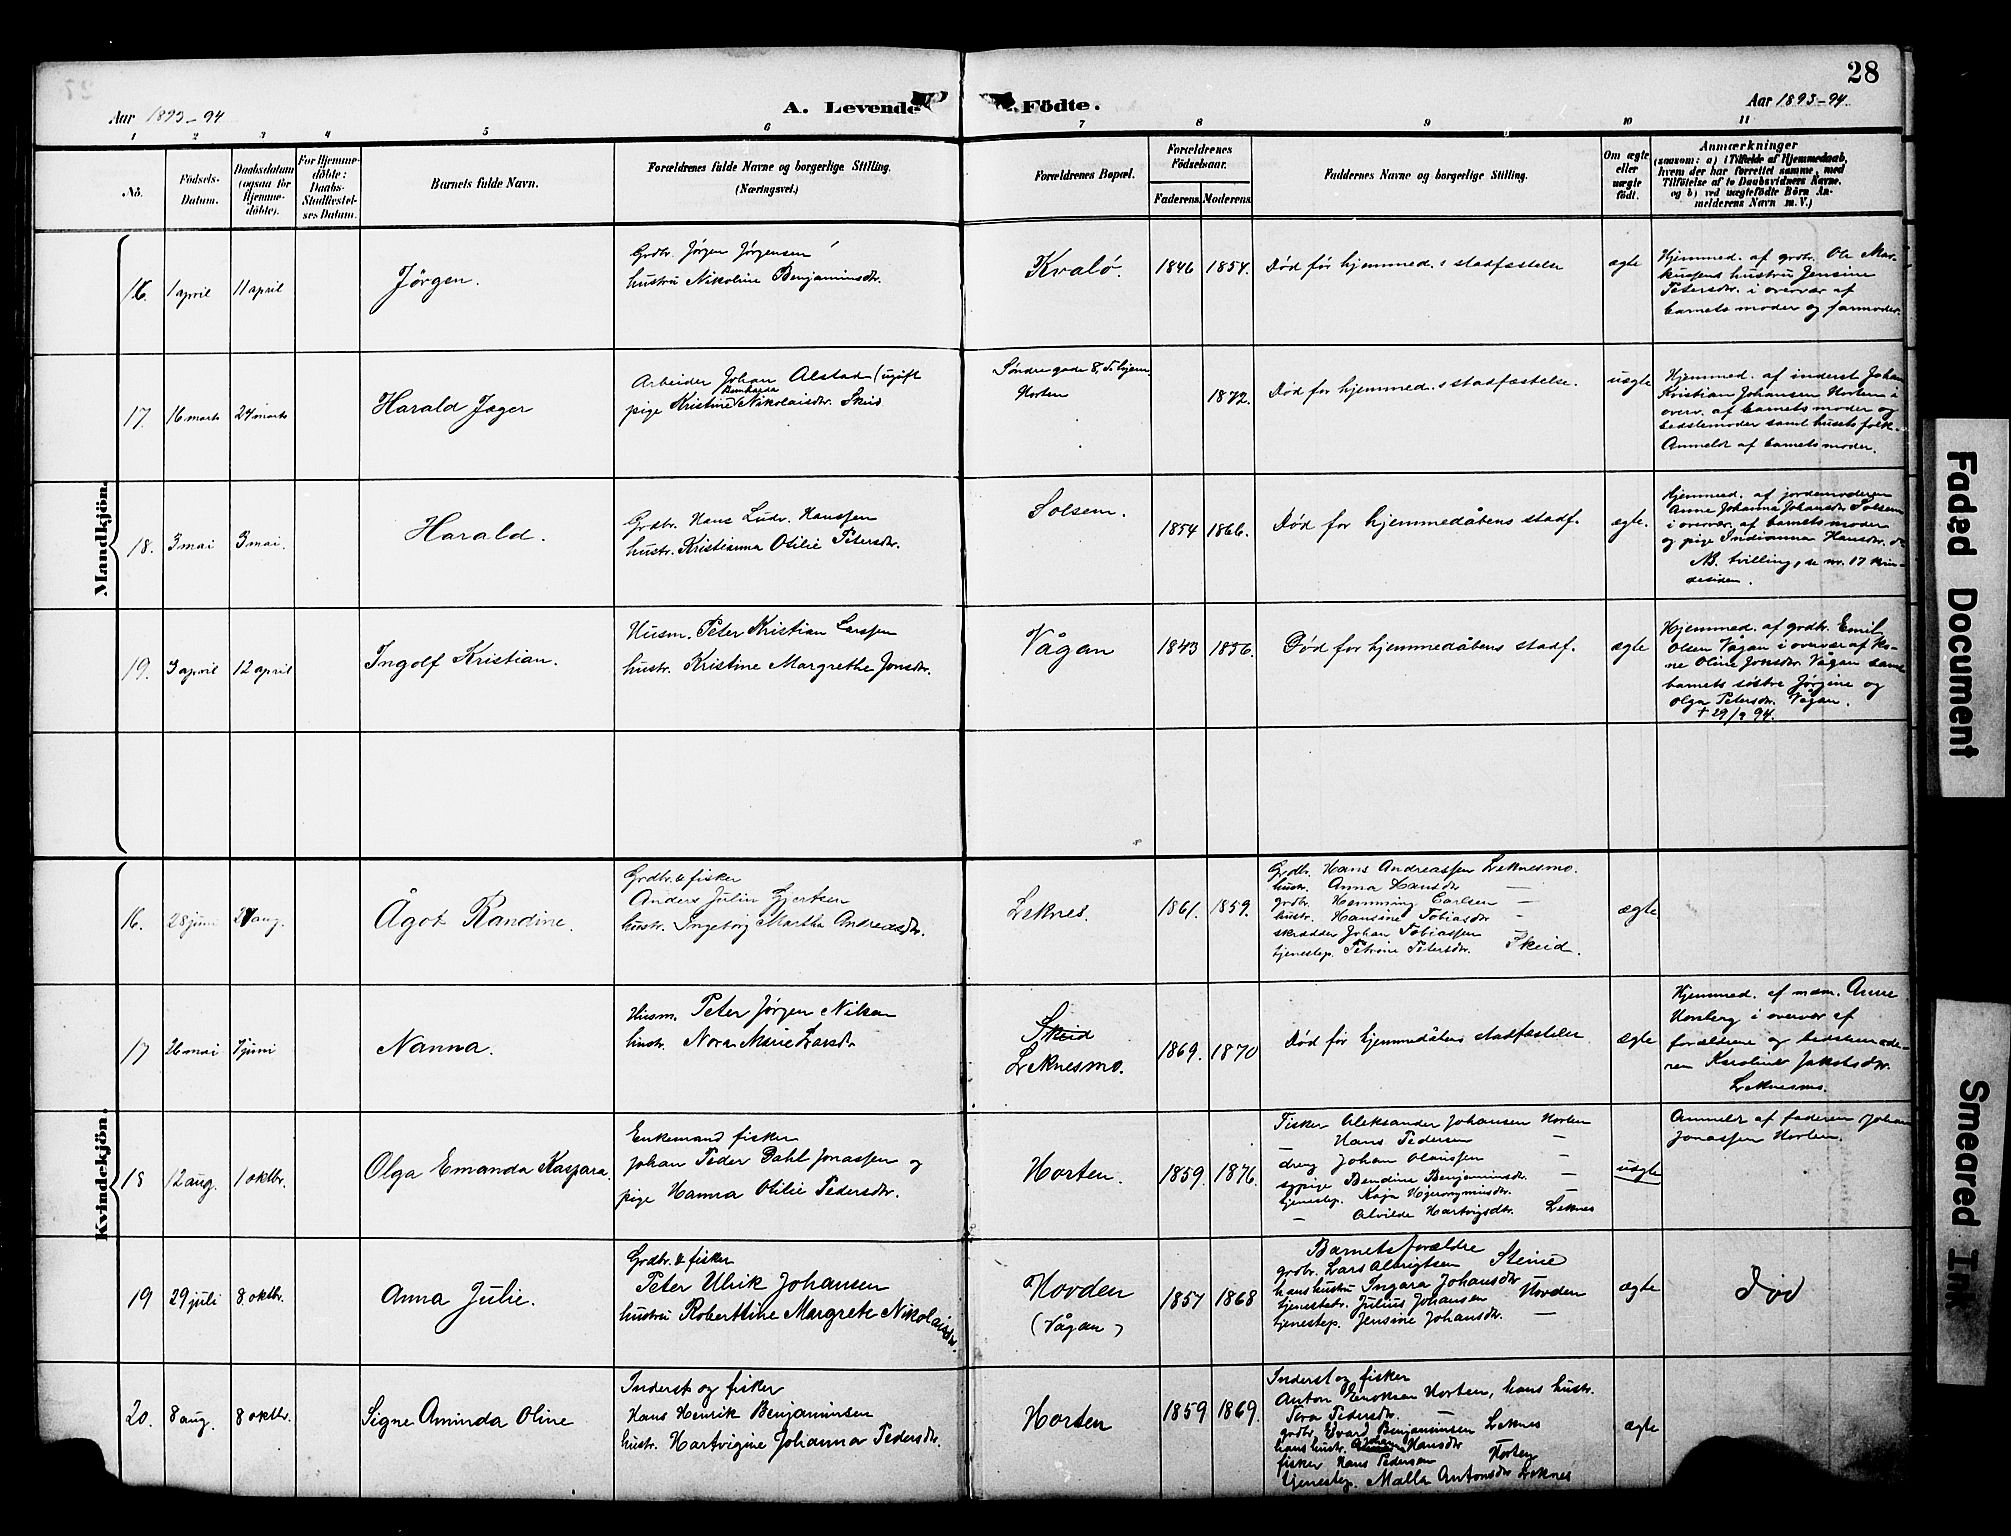 28
Aar 1893-94
A. Levende Födte.
Aar 1893-94.
1 2 3 4 5 6 7 8 9 10 11
No.
Födsels-Datum.
Daabsdatum (ogsaa for Hjemme-döbte).
For Hjemme-döbte: Daabs-Stadfæstel-ses Datum.
Barnets fulde Navn.
Forældrenes fulde Navne og borgerlige Stilling. (Næringsvei.)
Forældrenes Bopæl.
Forældrenes Födselsaar.
Faderens Moderens
Faddernes Navne og borgerlige Stilling.
Om ægte eller uægte født.
Anmærkninger
(saasom: a) i Tilfælde af Hjemmedaab,
hvem der har forrettet samme, med
Tilföielse af to Daabsvidners Navne,
og b) ved uægtefödte Börn An-
melderens Navn m. V.)
Mandkjön.
16. 1 april 11 april
Jörgen.
Grdbr. Jørgen Jørgensen
hustru Nikoline Benjaminsdr.
Kvalö.
1846 1854.
Död för hjemmed. s stadfæstelse
ægte
Hjemmed. af grdbr. Ole Mar-
kussens hustru Jensine
Petersdr. i overvær af
barnets moder og farmoder.
17. 16 marts 24 marts
Harald Jæger
Arbeider Johan Alstad (ugift
pige Kristine Nikolaisdr. Skeid
Søndregade 8, Tr.hjem
Horten
1872.
Död for hjemmed. s stadfæstelse.
uægte
Hjemmed. af inderst Johan
Kristian Johansen Horten i
overv. af barnets moder og
bedstemoder samt husets folk.
Anmeldt af barnets moder.
18. 3 mai 3 mai.
Harald.
Grdbr. Hans Ludv. Hanssen
hustr. Kristianna Otilie Petersdr.
Solsem.
1854 1866.
Död for hjemmedåbens stadf.
ægte.
Hjemmed. af jordemoderen
Anne Johanna Johansdr Solsem
i overvær af barnets moder
og pige Indianna Hansdr.
NB. tvilling, se nr. 17 kvin-
desiden.
19. 3 april 12 april
Ingolf Kristian.
Husm. Peter Kristian Larssen
hustr. Kristine Margrethe Jonsdr.
Vågan
1843 1856.
Död for hjemmedåbens stadf.
ægte
Hjemmed. af grdbr. Emil
Olsen Vågan i overvær af Ko-
ne Oline Jonsdr. Vågan samt
barnets søstre Jørgine og
Olga Petersdr. Vågan.
+ 29/9 94.
Kvindekjön.
16. 28 juni 27 aug.
Ågot Randine.
Grdbr. & fisker
Anders Julin Gjertsen
hustr. Ingeborg Martha Andreasdr.
Leknes.
1861. 1859.
Grdbr. Hans Andreassen Leknesmo.
hustr. Anna Hansdr —
grdbr. Hemming Carlsen —
hustr. Hansine Tobiasdr —
skrædder Johan Tobiassen
tjenestep. Petrine Petersdr. Skeid.
ægte
17 26 mai 7 juni
Nanna.
Husm. Peter Jørgen Nilsen
hustr. Nora Marie Larsdr
Skeid
Leknesmo.
1869. 1870
Död før hjemmedåbens stadfæstelse
ægte
Hjemmed. af mdm. Anne
Horsberg i overvær af
forældrene og bedstemode-
ren Karoline Jakobsdr.
Leknesmo.
18 12 aug. 1 oktbr.
Olga Emanda Kaspara.
Enkemand fisker
Johan Peder Dahl Jonassen og
pige Hanna Otilie Pedersdr.
Horten.
1859. 1876.
Fisker Aleksander Johansen Horten
— Hans Pedersen —
dreng Johan Olaussen —
sypige Bendine Benjaminsdr. —
tjenestep. Kaja Hjeronymusdr. —
— Alvilde Hartvigsdr. Leknes
uægte
Anmeldt af faderen Johan
Jonassen Horten.
19 29 juli 8 oktbr.
Anna Julie.
Grdbr. & fisker
Peter Ulrik Johansen
hustru Roberttine Margrete Nikolaisdr.
Hovden
(Vågan)
1857 1868
Barnets forældre
grdbr. Lars Albrigtsen Steine
hans hustru Ingara Johansdr
tjenestedr. Julius Johansen Hovden
tjenestep. Jensine Johansdr. —
ægte
Död
20. 8 aug. 8 oktbr.
Signe Aminda Oline
Inderst og fisker
Hans Henrik Benjaminsen
hustr. Hartvigine Johanna Pedersdr.
Horten
1859 1869.
Inderst og fisker
Anton Enoksen Horten, hans hustr.
Tora Pedersdr. —
grdbr. Edvard Benjaminsen Leknes
hans hustr. Hansdr
fisker Hans Pedersen Horten
tjenestep. Malla Antonsdr Leknes
ægte
Faded Document
Smeared Ink